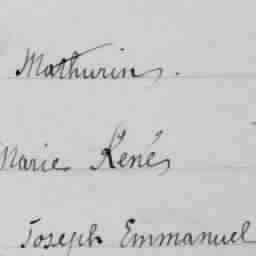 Mathurin.
Marie René
Joseph Emmanuel